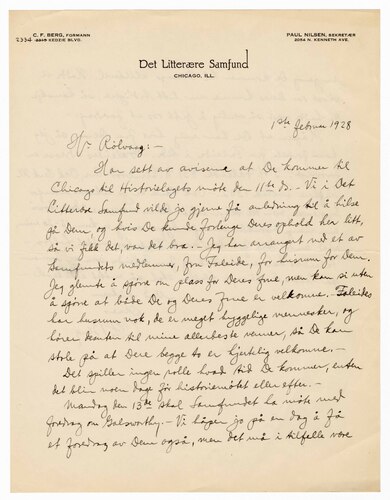 C. F. BERG, FORMANN
2334 3319 KEDZIE BLVD.
PAUL NILSEN, SEKRETÆR
2054 N. KENNETH AVE.
Det Litterære Samfund
CHICAGO, ILL.
1ste februar 1928
Hr. Rölvaag:-
Har sett av aviserne at De kommer til
Chicago til Historielagets möte den 11te ds. Vi i Det
Litterære Samfund vilde jo gjerne få anledning til å hilse
på Dem, og hvis De kunde forlenge Deres ophold her litt,
så vi fikk det, var det bra. - Jeg har arrangert med et av
Samfundets medlemmer, fru Faleide, for husrum for Dem.
Jeg glemte å spörre om plass for Deres frue, men kan si uten
å spörre at både De og Deres frue er velkomne. - Faleides
har husrum nok, de er meget hyggelige mennesker, og
hörer desuten til mine allerbeste venner, så De kan
stole på at Dere begge to er hjertelig velkomne. -
Det spiller ingen rolle hvad tid De kommer, enten
det blir noen dage för historiemötet eller efter. -
Mandag den 13de skal Samfundet ha möte med
foredrag om Galsworthy. - Vi håper jo på en dag å få
et foredrag av Dem også, men det må i tilfelle være